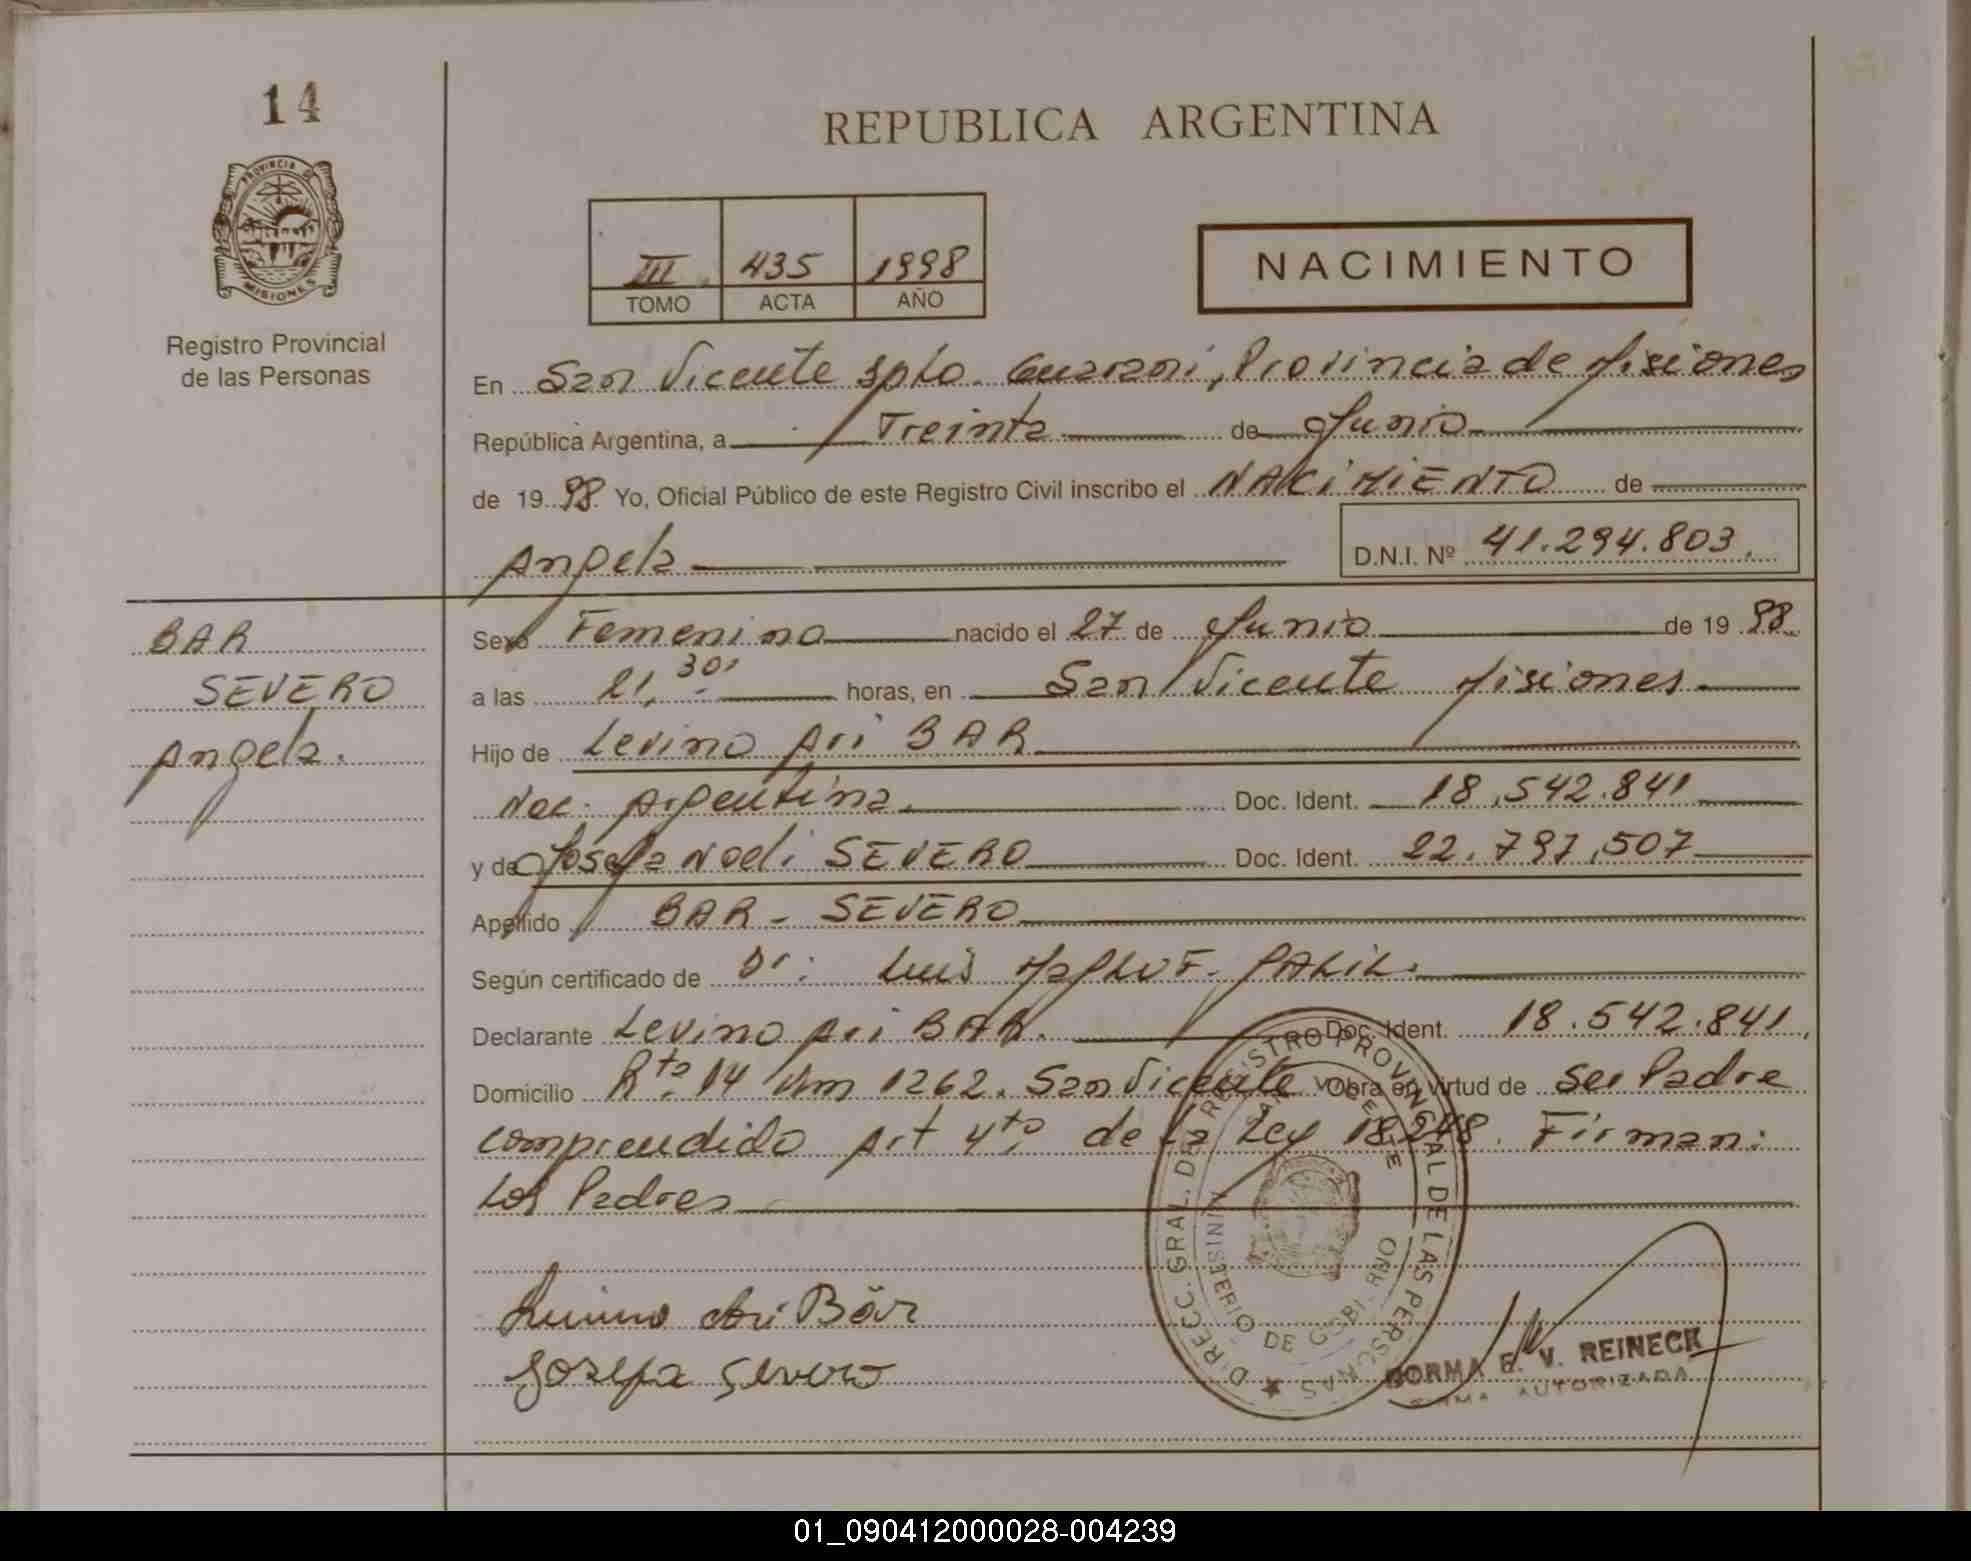 14
REPUBLICA ARGENTINA
PROVINCIA DE
MISIONES
Registro Provincial
de las Personas
III 435 1998
TOMO ACTA AÑO
NACIMIENTO
En San Vicente Dpto. Guarani, Provincia de Misiones
República Argentina, a Treinta de Junio
de 19 98 Yo, Oficial Público de este Registro Civil inscribo el NACIMIENTO de
Angela D.N.I. Nº 41.294.803.
BAR
SEVERO
Angela.
Sexo Femenino nacido el 27 de Junio de 19 98
a las 21,30' horas, en San Vicente Misiones
Hijo de Levino Ari BAR
Nac. Argentina. Doc. Ident. 18.542.841
y de Josefa Noeli SEVERO Doc. Ident. 22.797.507
Apellido BAR - SEVERO
Según certificado de Dr: Luis F.
Declarante Levino Ari BAR. Doc. Ident. 18.542.841.
Domicilio Rta. 14 Km 1262. San Vicente Obra en virtud de ser Padre
comprendido Art 4to de la Ley 18.248. Firman:
Los Padres
DIRECC. GRAL. DEL REGISTRO PROVINCIAL DE LAS PERSONAS
SAN VICENTE
MINISTERIO DE GOBIERNO
Levino Ari Bär
Josefa Severo
NORMA E. V. REINECK
FIRMA AUTORIZADA
01_090412000028-004239